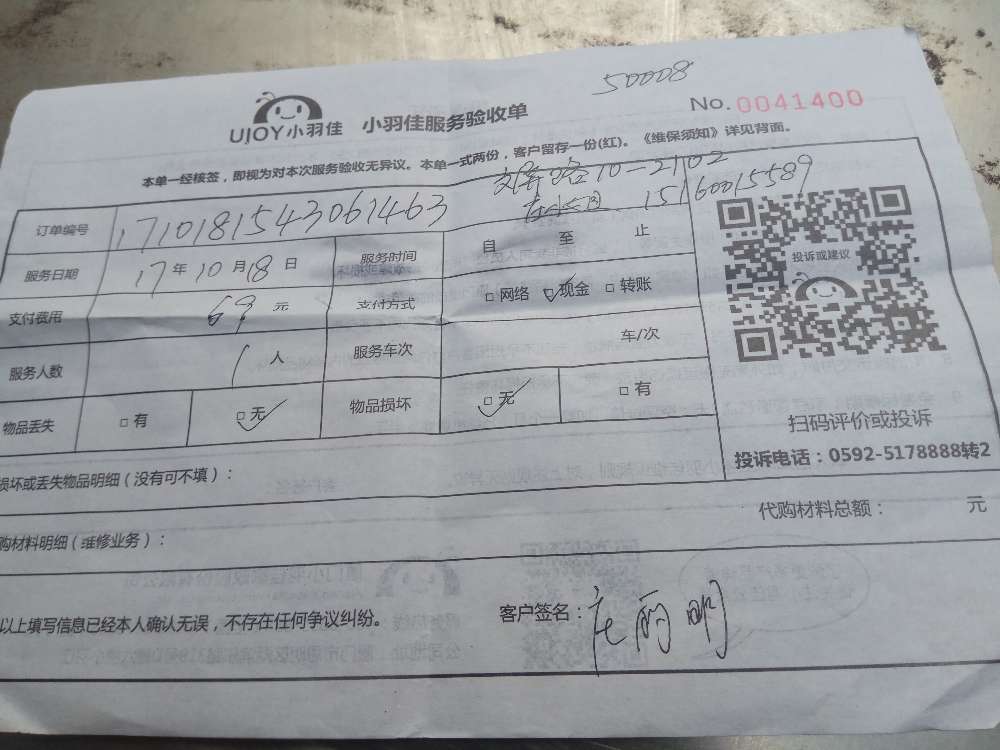 50008
UJOY小羽佳 小羽佳服务验收单 No.0041400
本单一经核签，即视为对本次服务验收无异议。本单一式两份，客户留存一份(红)。《维保须知》详见背面。
10-2102
15160015589
订单编号 1710181543061463
服务日期 17年10月18日 服务时间 自 至 止
支付费用 69元 支付方式 □网络 □现金 □转账
服务人数 1人 服务车次 车/次
物品丢失 □有 □无 物品损坏 □无 □有
投诉或建议
扫码评价或投诉
投诉电话：0592-5178888转2
损坏或丢失物品明细（没有可不填）：
购材料明细（维修业务）： 代购材料总额： 元
以上填写信息已经本人确认无误，不存在任何争议纠纷。 客户签名：庄丽明